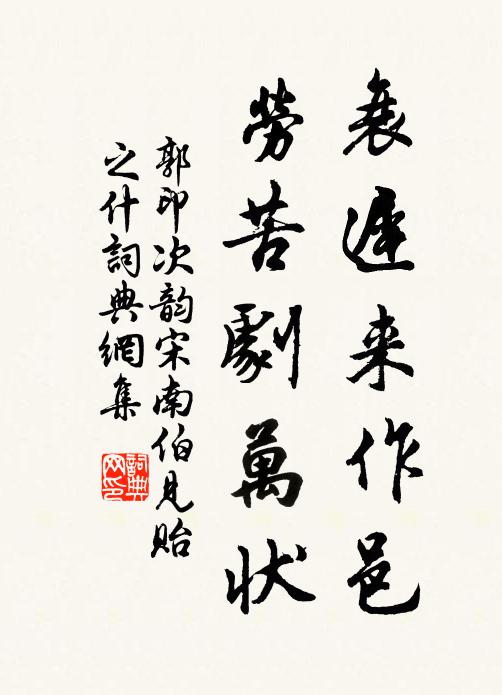 衰遲来作邑
勞苦劇萬状
郭印次韵宋南伯見貽
之什詞典網集
詞典
网印